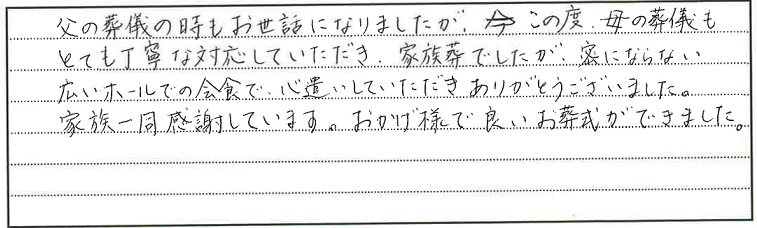 父の葬儀の時もお世話になりましたが、この度、母の葬儀も
とても丁寧な対応していただき、家族葬でしたが、密にならない
広いホールでの会食で、心遣いしていただきありがとうございました。
家族一同感謝しています。おかげ様で良いお葬式ができました。